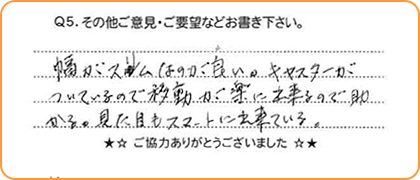 Q5. その他ご意見・ご要望などお書き下さい。
幅がスリムなのが良い。キャスターが
ついているので移動が楽に出来るので助
かる。見た目もスマートに出来ている。
★☆ ご協力ありがとうございました ☆★